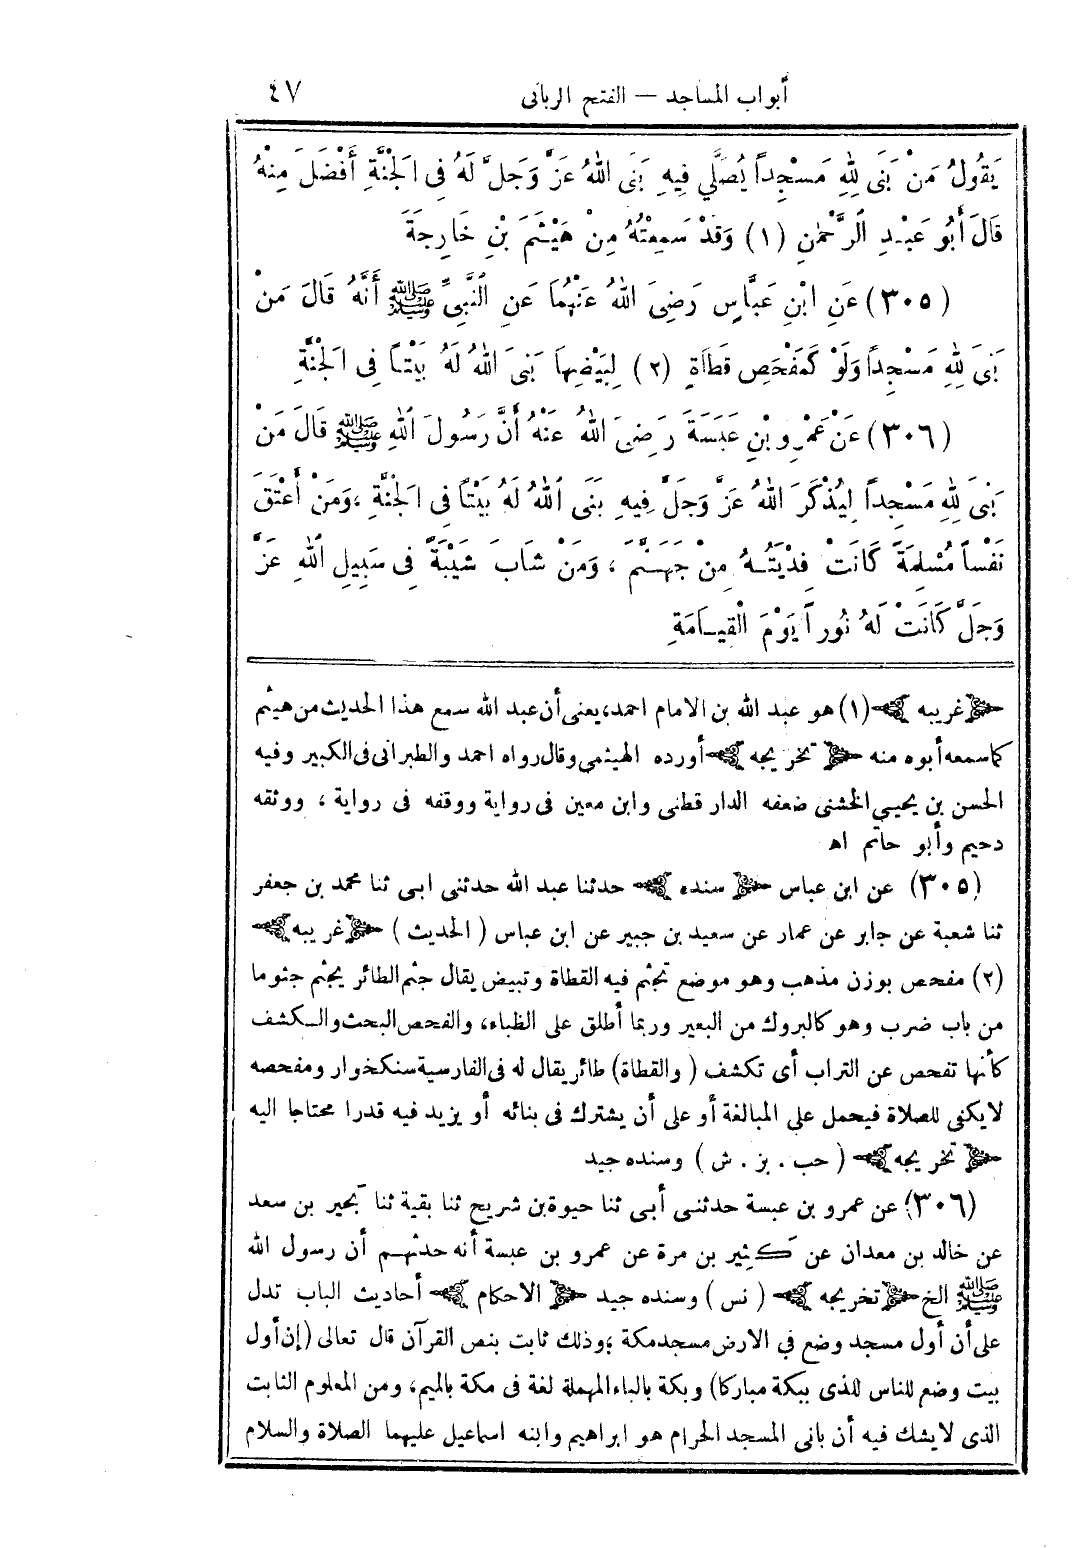 أبواب المساجد — الفتح الربانى ٤٧
يَقُولُ مَنْ بَنَى لِلهِ مَسْجِداً يُصَلَّي فِيهِ بَنَى اللهُ عَزَّ وَجَلَّ لَهُ فِى الْجَنَّةِ أَفْضَلَ مِنْهُ
قَالَ أَبُو عَبْدِ الرَّحْمٰنِ (١) وَقَدْ سَمِعْتُهُ مِنْ هَيْثَمَ بْنِ خَارِجَةَ
(٣٠٥) عَنِ ابْنِ عَبَّاسٍ رَضِىَ اللهُ عَنْهُمَا عَنِ النَّبِىِّ ﷺ أَنَّهُ قَالَ مَنْ
بَنَى لِلهِ مَسْجِداً وَلَوْ كَمَفْحَصِ قَطَاةٍ (٢) لِبَيْضِهَا بَنَى اللهُ لَهُ بَيْتاً فِى الْجَنَّةِ
(٣٠٦) عَنْ عَمْرِو بْنِ عَبَسَةَ رَضِىَ اللهُ عَنْهُ أَنَّ رَسُولَ اللهِ ﷺ قَالَ مَنْ
بَنَى لِلهِ مَسْجِداً لِيُذْكَرَ اللهُ عَزَّ وَجَلَّ فِيهِ بَنَى اللهُ لَهُ بَيْتاً فِى الْجَنَّةِ، وَمَنْ أَعْتَقَ
نَفْساً مُسْلِمَةً كَانَتْ فِدْيَتُهُ مِنْ جَهَنَّمَ، وَمَنْ شَابَ شَيْبَةً فِى سَبِيلِ اللهِ عَزَّ
وَجَلَّ كَانَتْ لَهُ نُوراً يَوْمَ الْقِيَامَةِ
﴿غريبه﴾ (١) هو عبد الله بن الامام احمد، يعنى أن عبد الله سمع هذا الحديث من هيثم
كما سمعه أبوه منه ﴿تخريجه﴾ أورده الهيثمى وقال رواه احمد والطبرانى فى الكبير وفيه
الحسن بن يحيى الخشنى ضعفه الدار قطنى وابن معين فى رواية ووقفه فى رواية، ووثقه
دحيم وأبو حاتم اهـ
(٣٠٥) عن ابن عباس ﴿سنده﴾ حدثنا عبد الله حدثنى ابى ثنا محمد بن جعفر
ثنا شعبة عن جابر عن عمار عن سعيد بن جبير عن ابن عباس (الحديث) ﴿غريبه﴾
(٢) مفحص بوزن مذهب وهو موضع تجثم فيه القطاة وتبيض يقال جثم الطائر يجثم جثوما
من باب ضرب وهو كالبروك من البعير وربما أطلق على الظباء، والفحص البحث والكشف
كأنها تفحص عن التراب أى تكشف (والقطاة) طائر يقال له فى الفارسية سنكخوار ومفحصه
لا يكفى للصلاة فيحمل على المبالغة أو على أن يشترك فى بنائه أو يزيد فيه قدرا محتاجا اليه
﴿تخريجه﴾ (حب . بز . ش) وسنده جيد
(٣٠٦) عن عمرو بن عبسة حدثنى أبى ثنا حيوة بن شريح ثنا بقية ثنا بحير بن سعد
عن خالد بن معدان عن كثير بن مرة عن عمرو بن عبسة أنه حدثهم أن رسول الله
ﷺ الخ ﴿تخريجه﴾ (نس) وسنده جيد ﴿الاحكام﴾ أحاديث الباب تدل
على أن أول مسجد وضع في الارض مسجد مكة؛ وذلك ثابت بنص القرآن قال تعالى (إن أول
بيت وضع للناس للذى ببكة مباركا) وبكة بالباء المهملة لغة فى مكة بالميم، ومن المعلوم الثابت
الذى لا يشك فيه أن بانى المسجد الحرام هو ابراهيم وابنه اسماعيل عليهما الصلاة والسلام